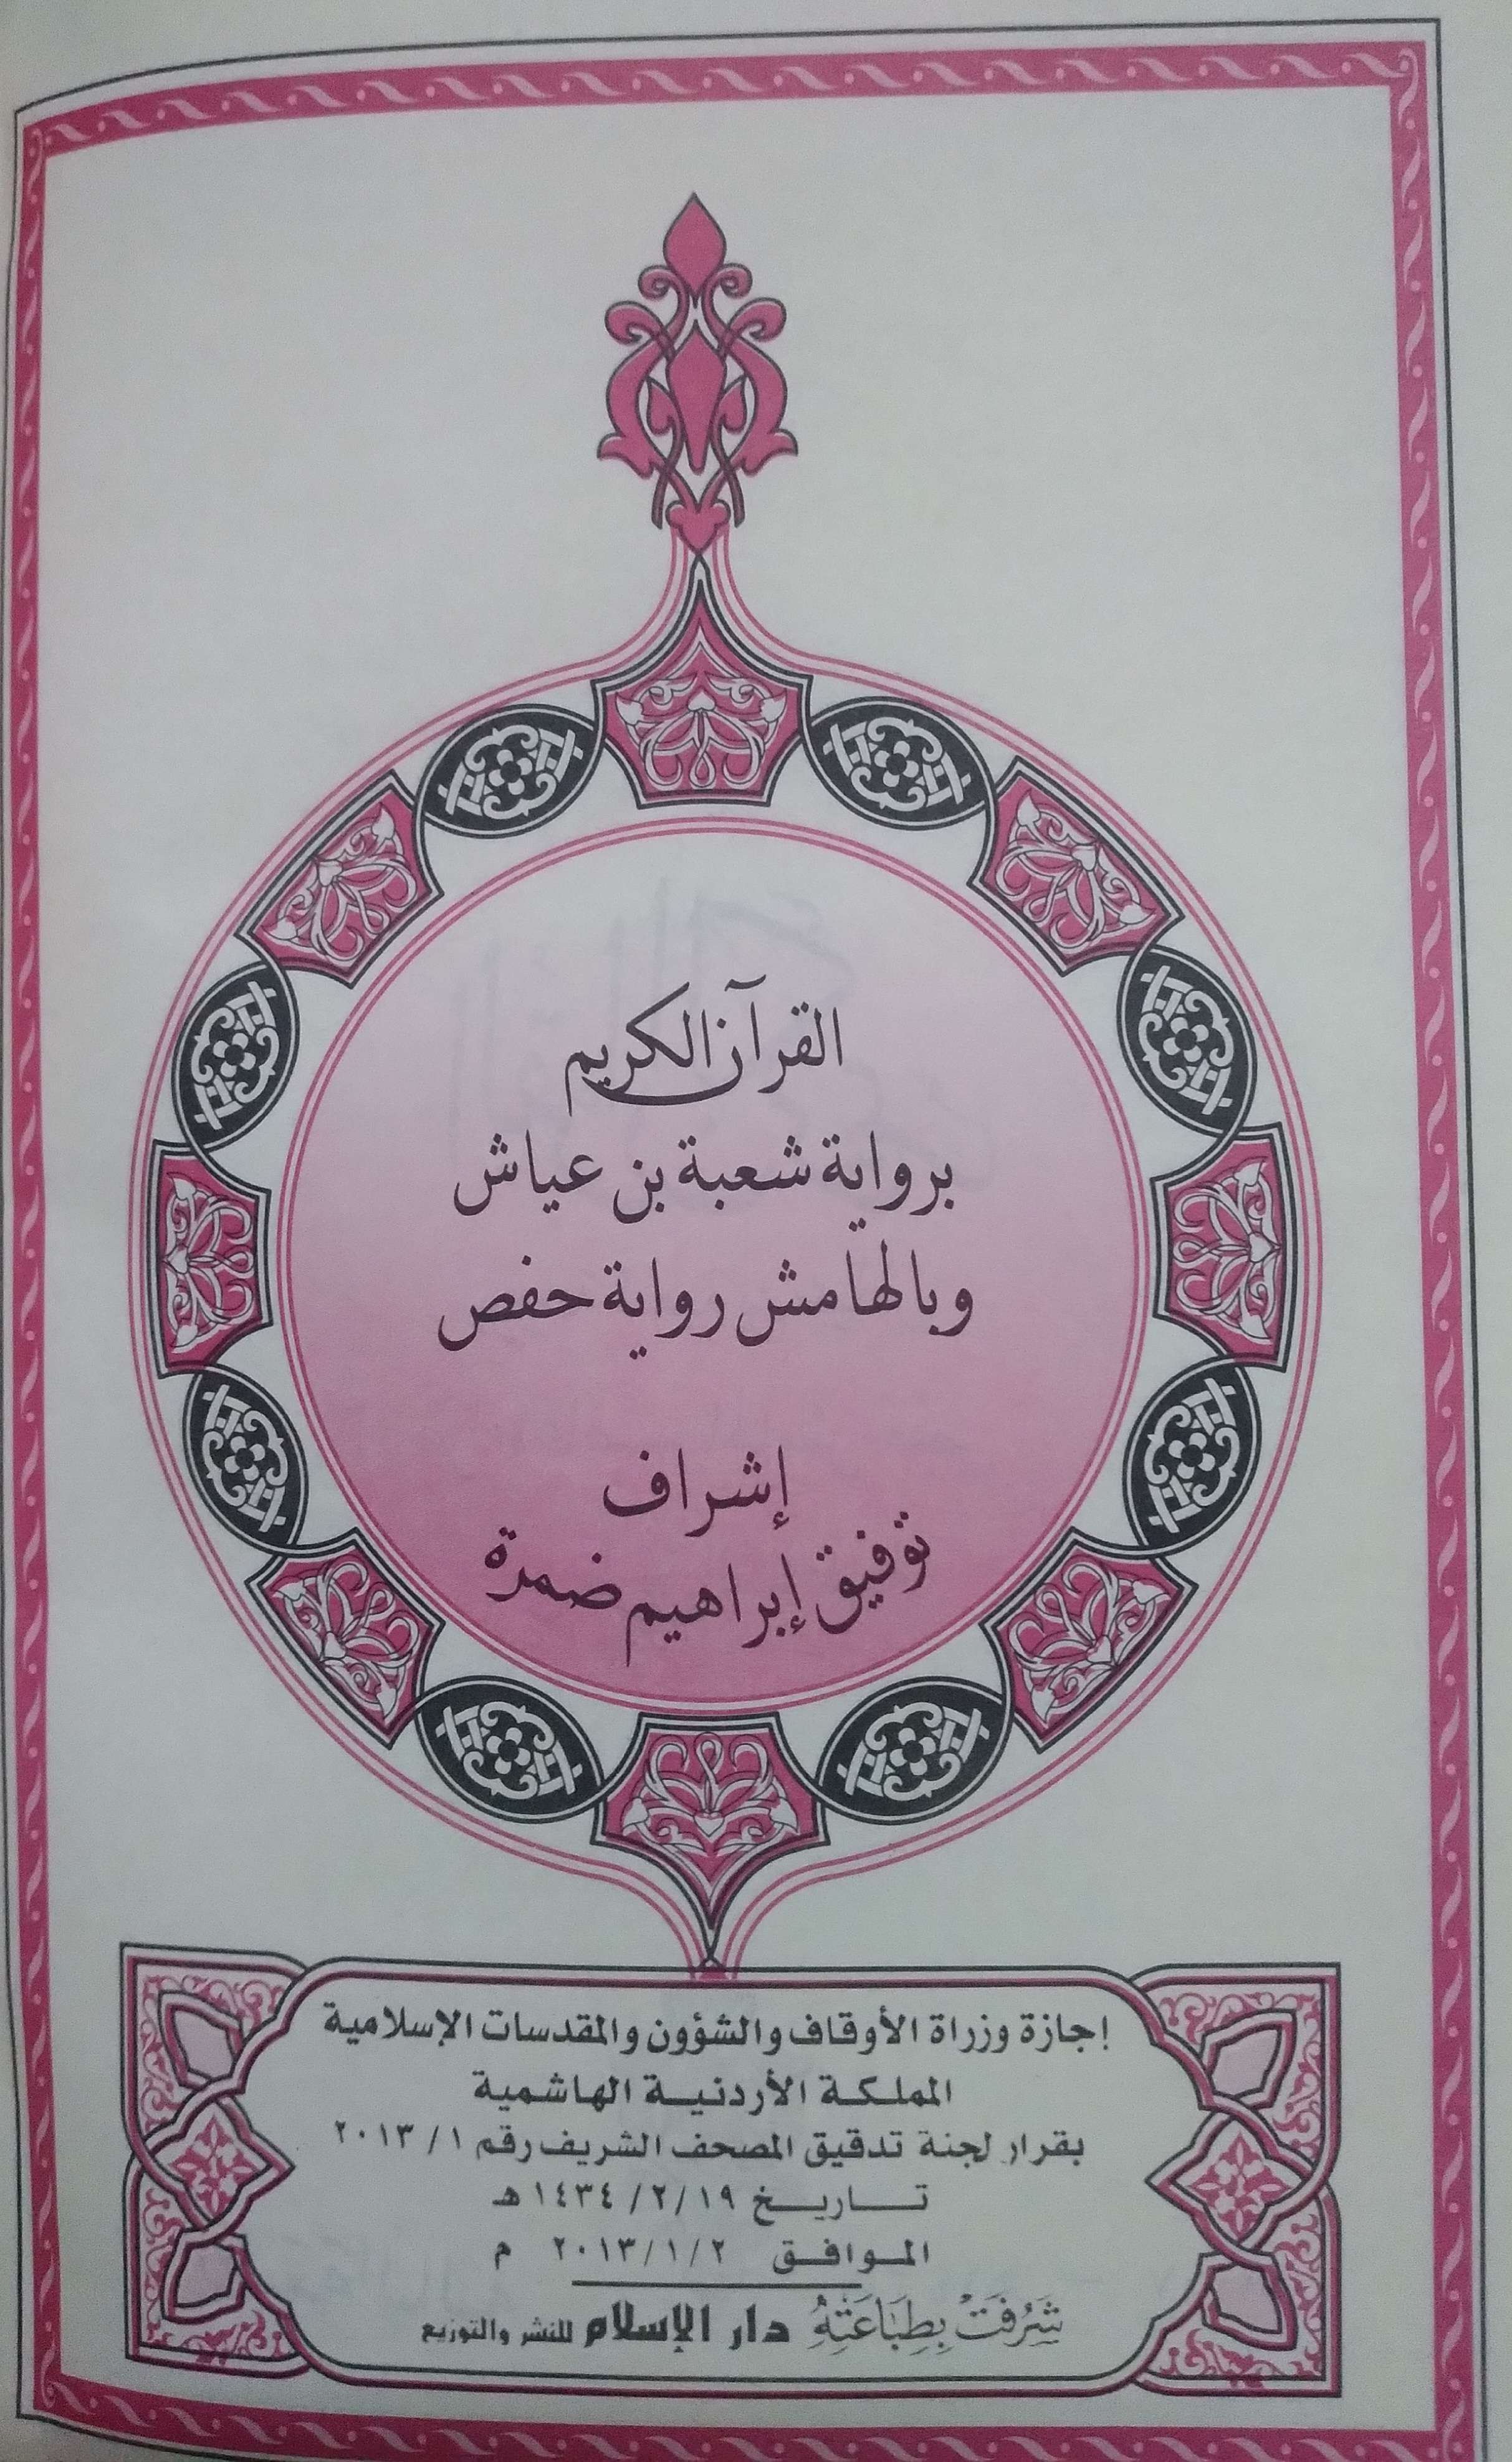 القرآن الكريم
برواية شعبة بن عياش
وبالهامش رواية حفص
إشراف
توفيق إبراهيم ضمرة
إجازة وزراة الأوقاف والشؤون والمقدسات الإسلامية
المملكة الأردنية الهاشمية
بقرار لجنة تدقيق المصحف الشريف رقم ١/ ٢٠١٣
تاريخ ١٤٣٤/٢/١٩هـ
الموافق ٢٠١٣/١/٢ م
شَرُفَتْ بِطِبَاعَتِهِ دار الإسلام للنشر والتوزيع